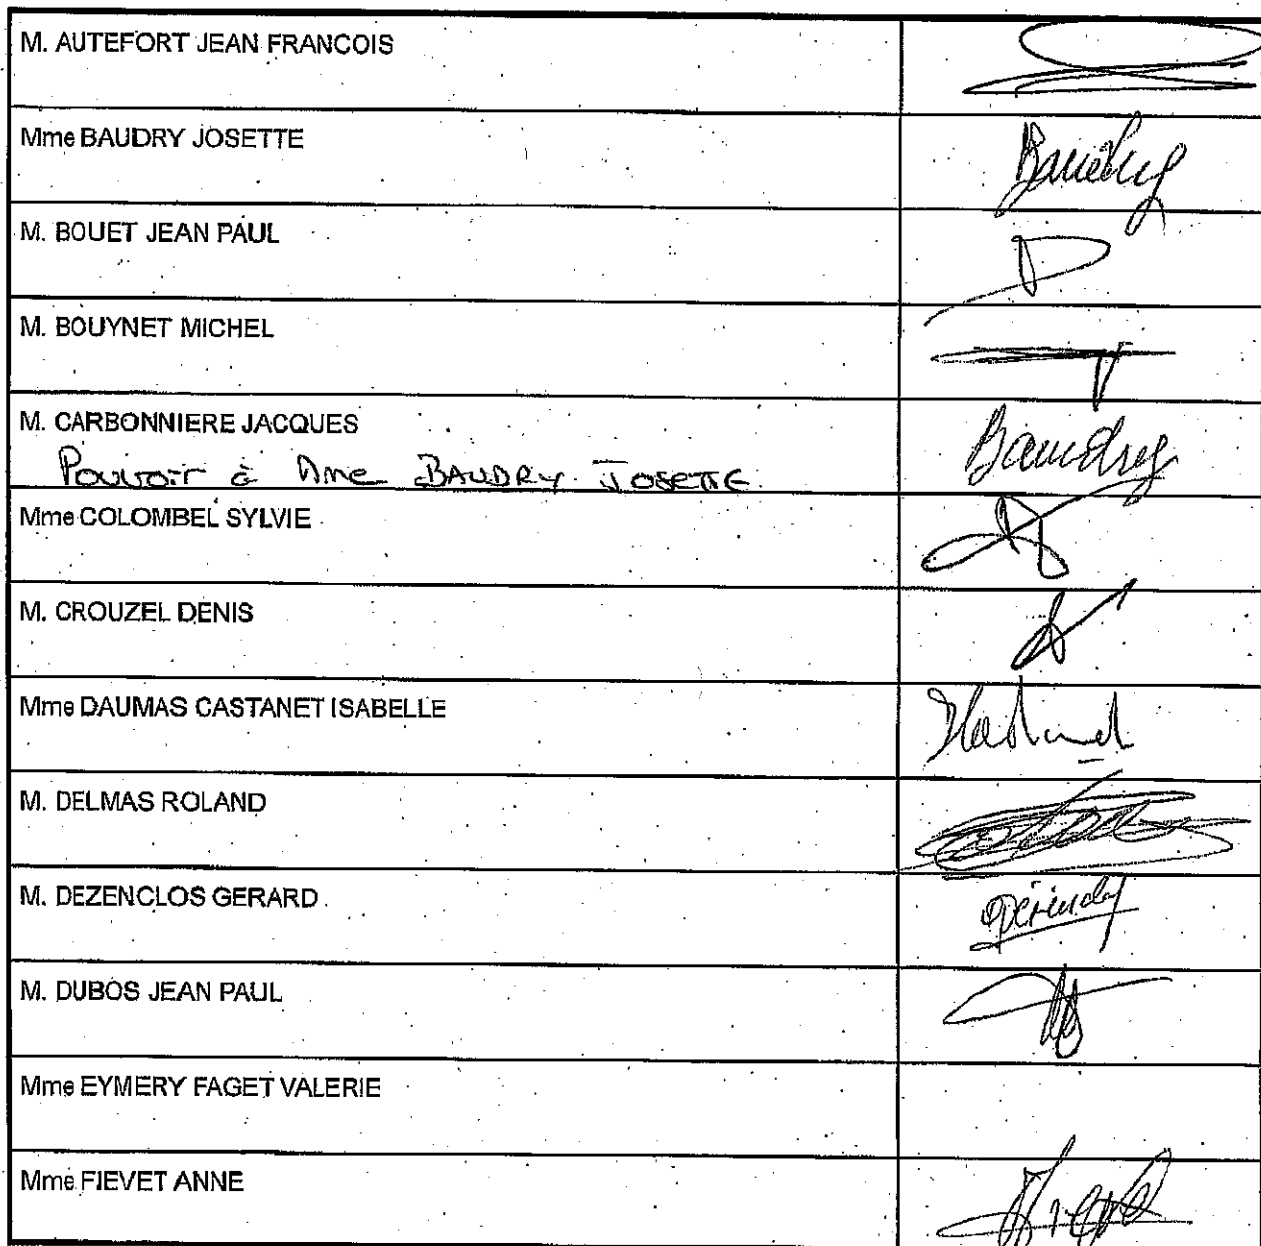 M. AUTEFORT JEAN FRANCOIS
Mme BAUDRY JOSETTE
Baudry
M. BOUET JEAN PAUL
M. BOUYNET MICHEL
M. CARBONNIERE JACQUES
Pouvoir à Mme BAUDRY JOSETTE
Baudry
Mme COLOMBEL SYLVIE
M. CROUZEL DENIS
Mme DAUMAS CASTANET ISABELLE
M. DELMAS ROLAND
M. DEZENCLOS GERARD
M. DUBOS JEAN PAUL
Mme EYMERY FAGET VALERIE
Mme FIEVET ANNE